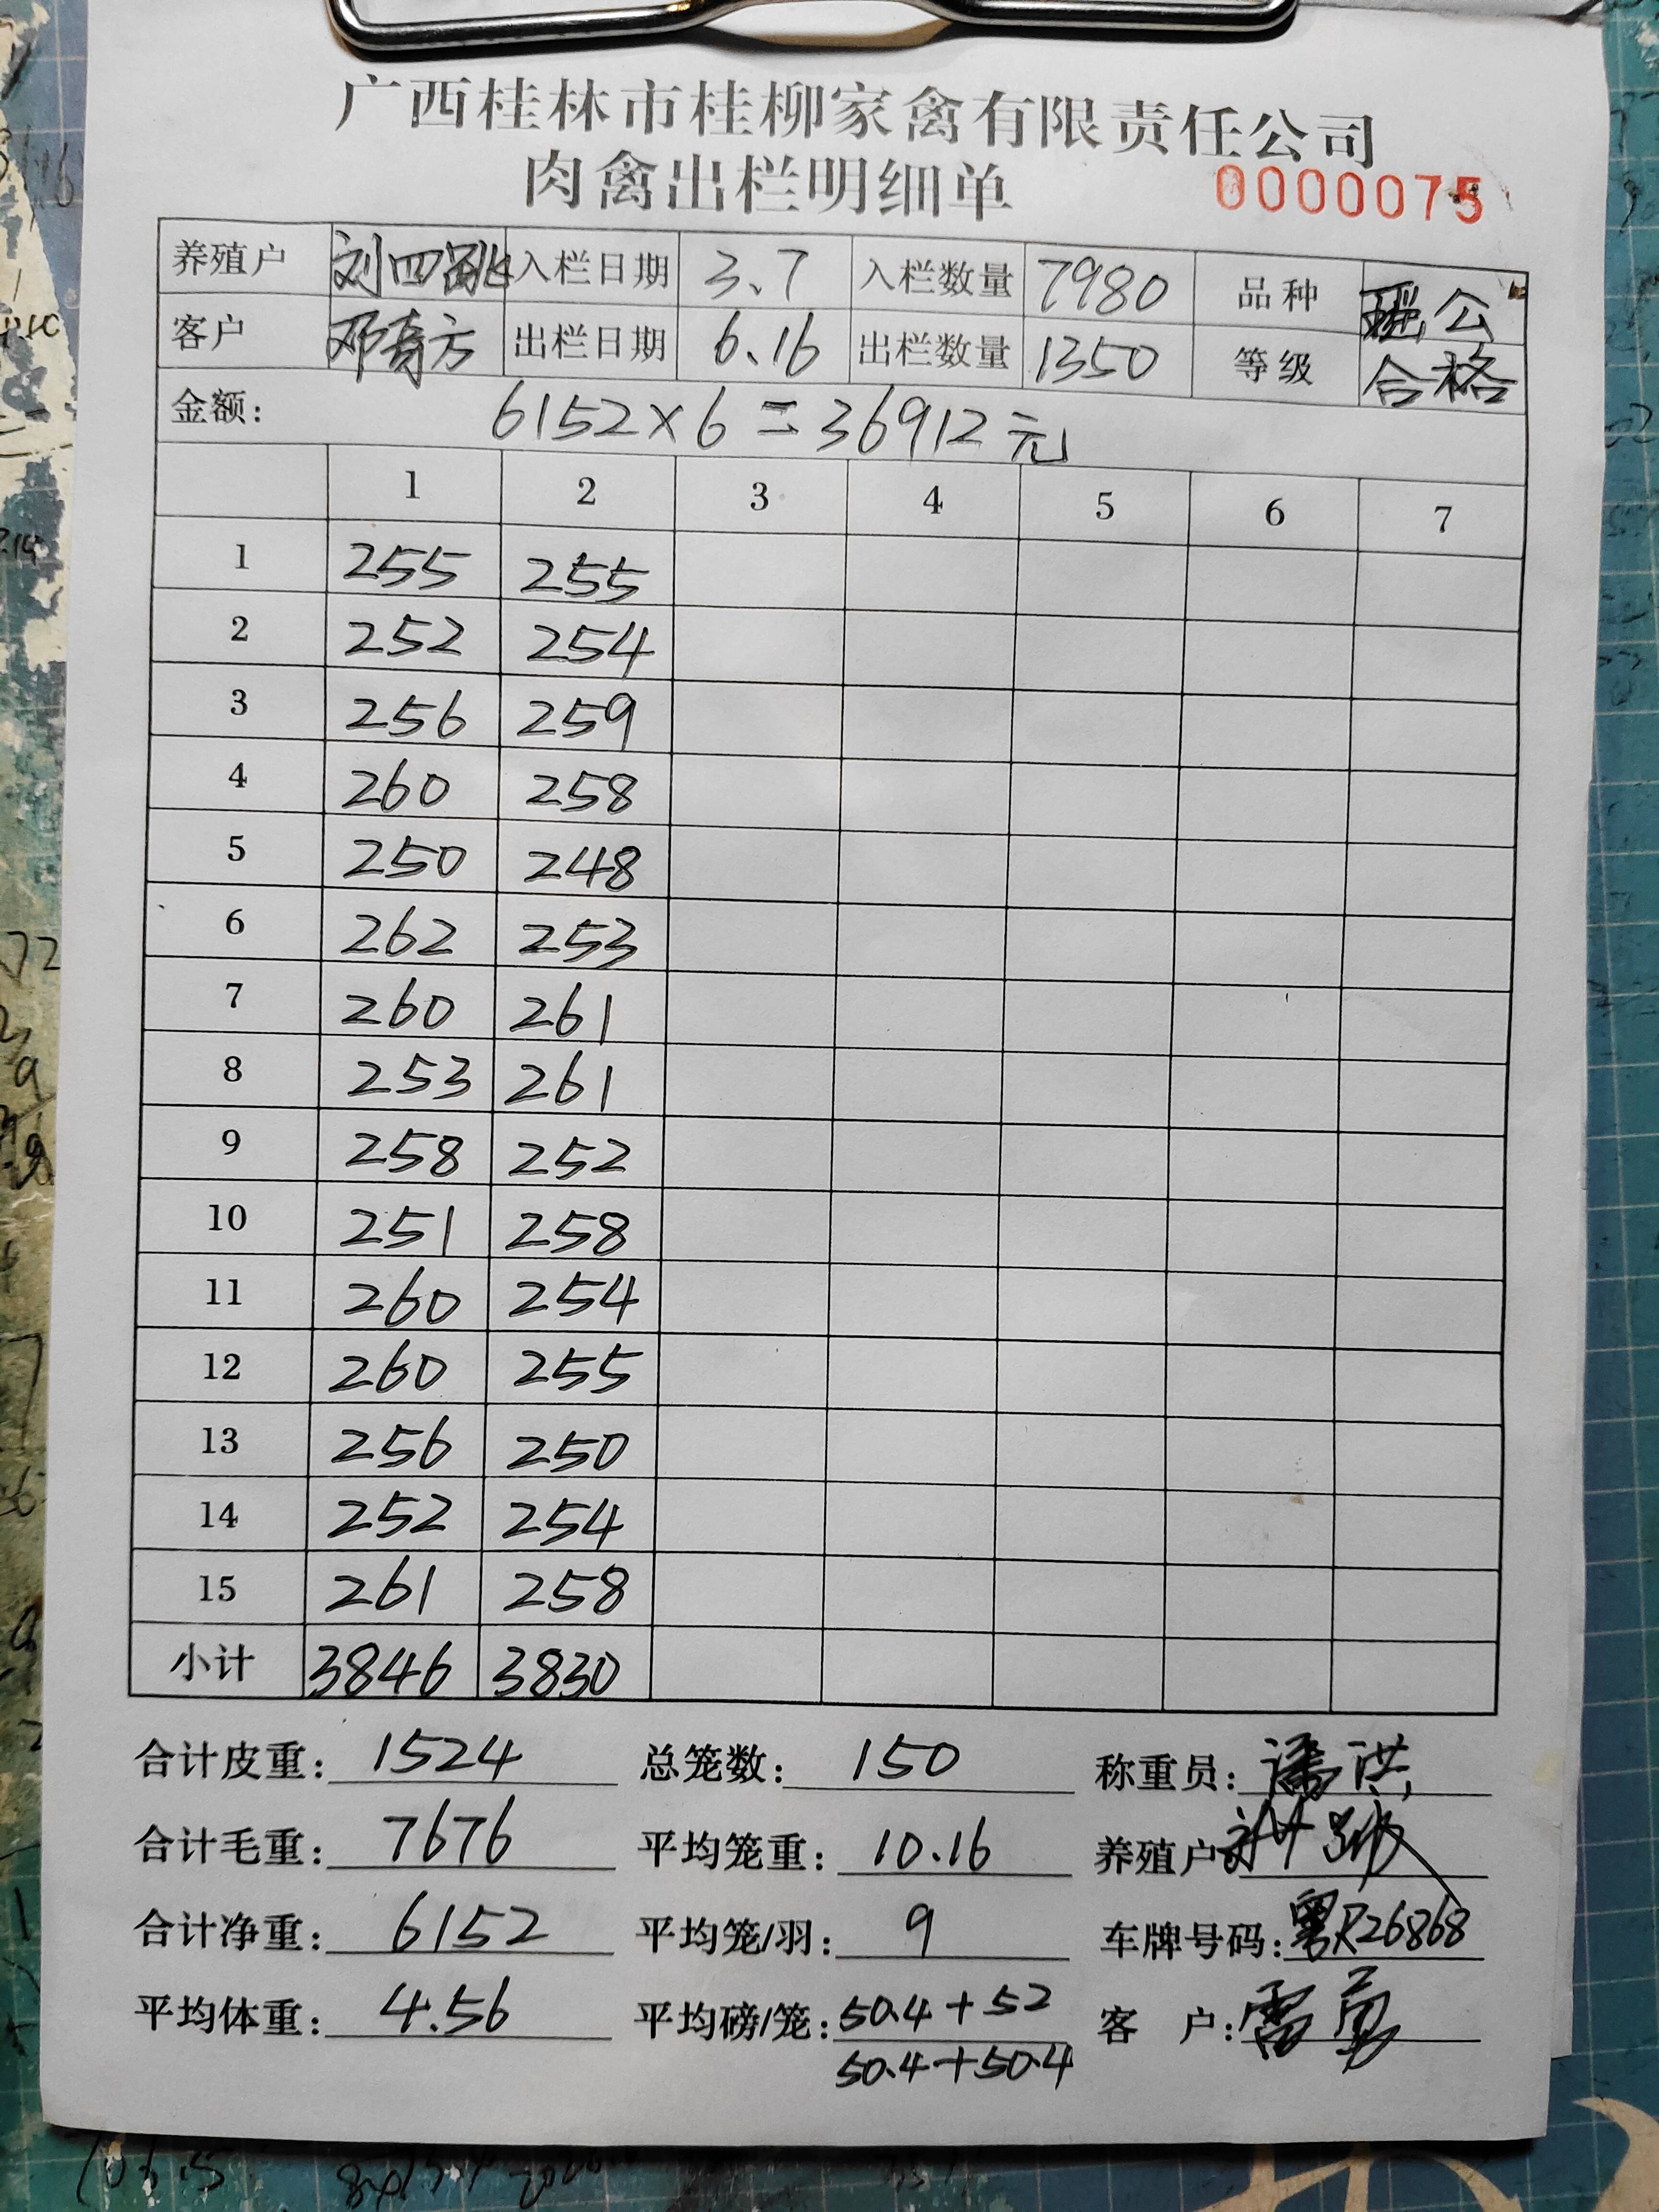 广西桂林市桂柳家禽有限责任公司
肉禽出栏明细单
0000075
养殖户 刘四 入栏日期 3.7 入栏数量 7980 品种 瑶公
客户 邓育方 出栏日期 6.16 出栏数量 1350 等级 合格
金额: 6152×6=36912元
1 2 3 4 5 6 7
1 255 255
2 252 254
3 256 259
4 260 258
5 250 248
6 262 253
7 260 261
8 253 261
9 258 252
10 251 258
11 260 254
12 260 255
13 256 250
14 252 254
15 261 258
小计 3846 3830
合计皮重: 1524 总笼数: 150 称重员: 潘洪
合计毛重: 7676 平均笼重: 10.16 养殖户
合计净重: 6152 平均笼/羽: 9 车牌号码: 粤R26868
平均体重: 4.56 平均磅/笼: 50.4+52 客户:
50.4+50.4